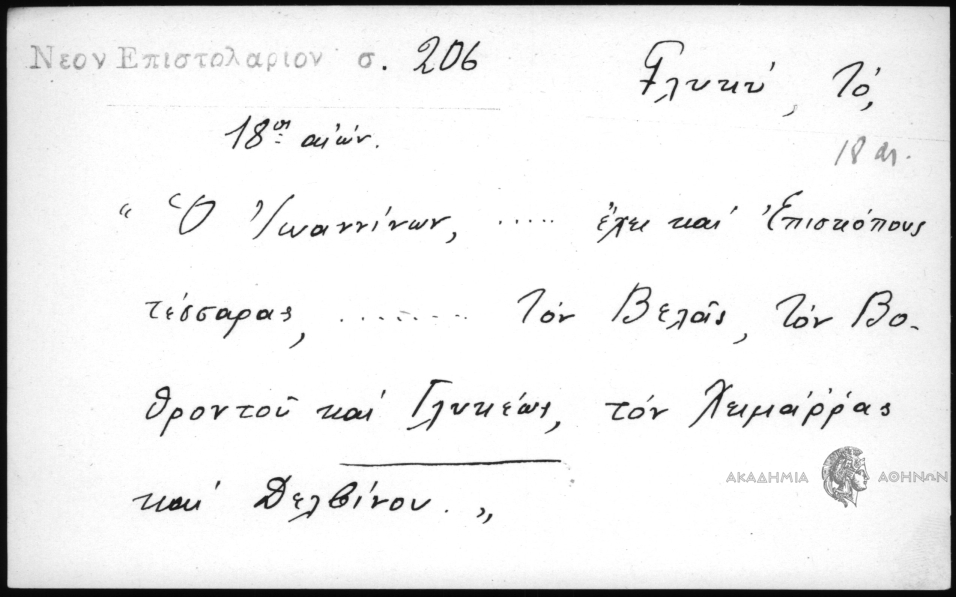 Νεον Επιστολαριον σ. 206
Γλυκύ, τό,
18ος αἰών.
18 αι.
"Ὁ Ἰωαννίνων, ..... ἔχει καὶ Ἐπισκόπους
τέσσαρας, ........ τὸν Βελᾶς, τὸν Βο-
θροντοῦ καὶ Γλυκέως, τὸν Χειμάῤῥας
καὶ Δελβίνου."
ΑΚΑΔΗΜΙΑ ΑΘΗΝΩΝ